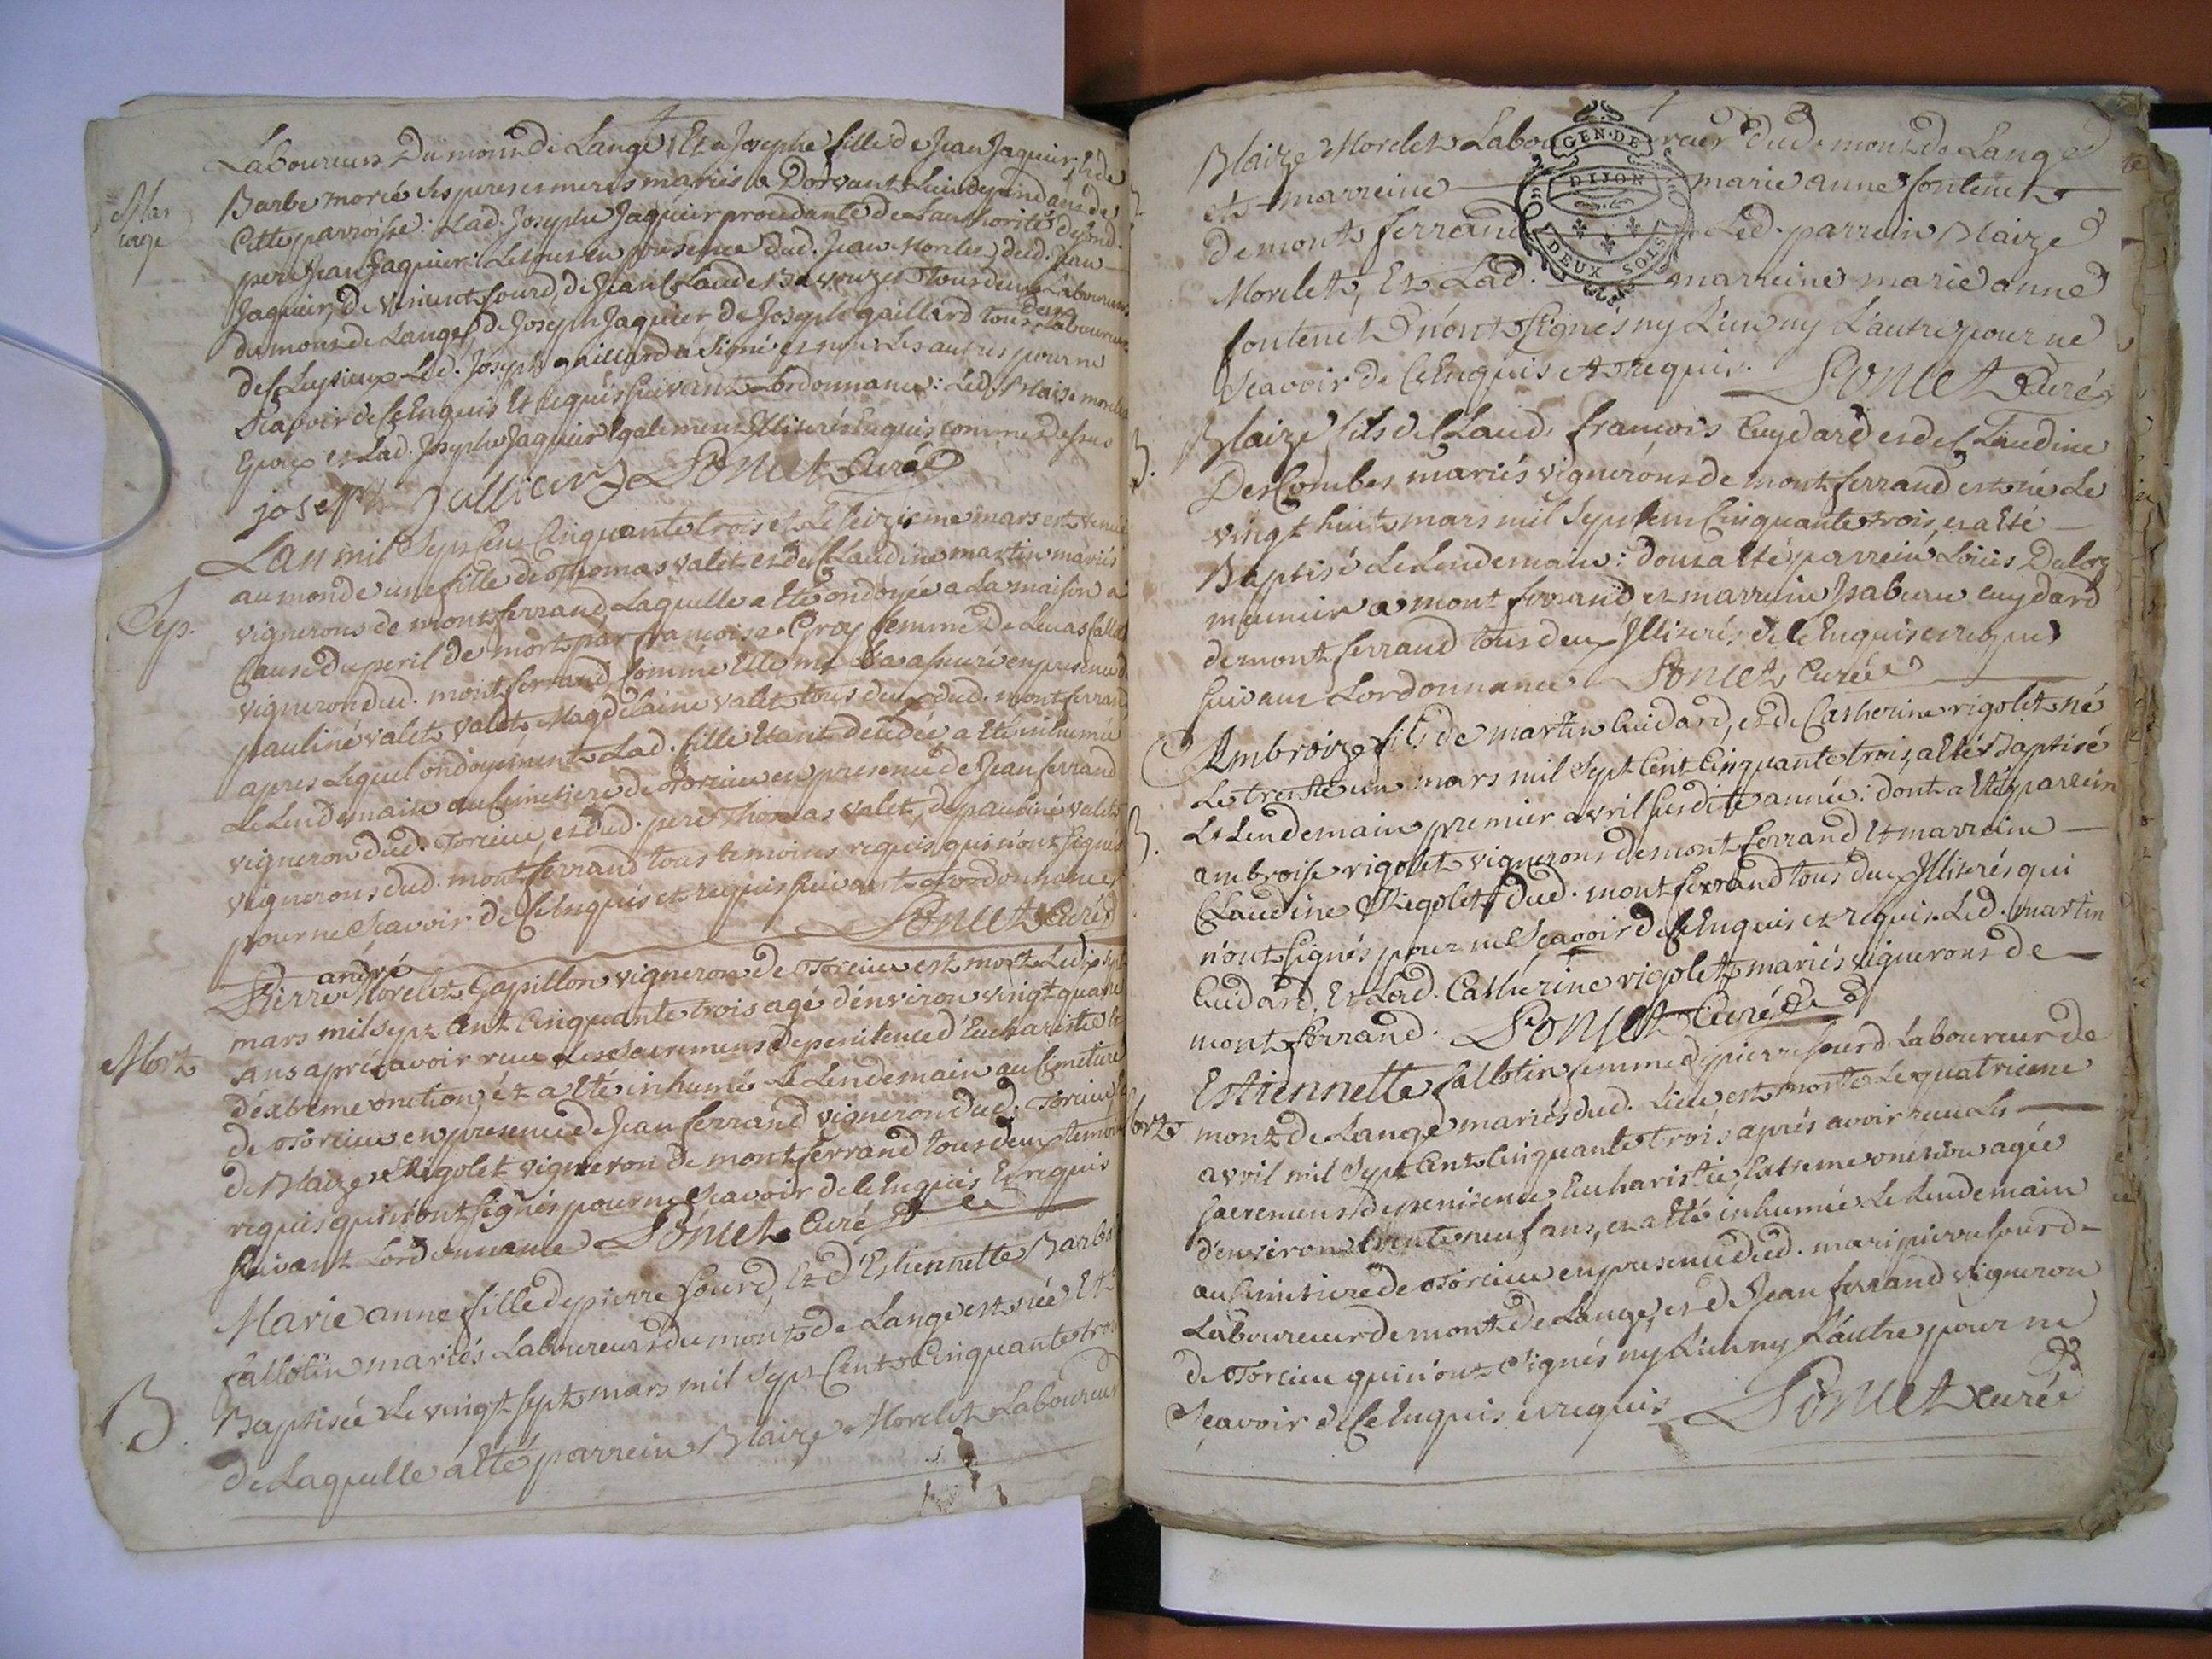 Laboureurs Du mont de Lange, Et a Josephe fille de Jean Jaquier, Et de
Mar
iage
Barbe morié ses peres et meres mariés a Dorvant Lieu dependant de
Cette parroisse: Lad. Josephe Jaquier procedante de Lauthorité de sond.
pere Jean Jaquier: Le tout en presence dud. Jean Morlet, dud. Jean
Jaquier, de Vincent fourd, de Jean Claude tous deux Laboureurs
du mont de Lange, de Joseph Jaquier de Joseph gaillard tous deux Laboureurs
de Led. Joseph gaillard a Signé et non Les autres pour ne
Scavoir de ce Enquis Et requis suivant Lordonnance: Led. Blaise morlet
Epoux et Lad. Josephe Jaquier Egalement Illiterés Enquis comme Dessus
joseph Ponet Curé
Lan mil Sept Cens Cinquante trois et Le treizieme mars est venüe
au monde une fille de Thomas valet et de Claudine martin mariés
Sep.
vignerons de montferrand, Laquelle a Eté ondoyée a La maison a
Cause du peril de mort par francoise Groz femme De Lucas
vigneron dud. montferrand, comme Elle me La assuré en presence de
pauline valet valet Magdelaine valet tous deux dud. montferrand
apres Lequel ondoyement Lad. fille Etant decedée a Eté inhumée
Le Lendemain au Cimetiere de Torcieu en presence de Jean ferrand
vigneron dud. Torcieu, et dud. pere Thomas valet, de pauline valet
vignerons dud. montferrand tous temoins requis, qui n'ont signés
pour ne Scavoir de ce Enquis et requis suivant Lordonnance
Ponet Curé
andré
Pierre Morelet Gapillon vigneron de Torcieu est mort Le dix sept
mars mil sept Cent Cinquante trois agé d'environ vingt quatre
Mort
ans aprés avoir reçu Les Sacremens de penitence d'Eucharistie Et
d'extreme onction, et a Eté inhumé Le Lendemain au Cimetiere
de Torcieu en presence de Jean ferrand vigneron dud. Torcieu, Et
de Blaize Rigolet vigneron de montferrand tous deux temoins
requis qui n'ont signés pour ne Scavoir de ce Enquis Et requis
suivant Lordonnance Ponet Curé
Marie anne fille de pierre fourd, Et d'Estiennette Barbe
fallotin mariés Laboureurs du mont de Lange est née Et
B.
Baptisée Le vingt sept mars mil Sept Cent Cinquante trois
de Laquelle a Eté parrein Blaize Morelet Laboureur
Blaize Morelet Laboureur dud. mont de Lange
GEN. DE
DIJON
DEUX SOLS
et marreine marie anne fontenet
de mont ferrand Led. parrein Blaize
Morelet, Et Lad. marreine marie anne
fontenet n'ont Signés ny L'un ny L'autre pour ne
Scavoir de ce Enquis et requis. Ponet Curé
B.
Blaize fils de Claude francois Cuydard et de Claudine
Descombes mariés vignerons de mont ferrand est né Le
vingt huit mars mil Sept cens Cinquante trois, et a Eté
Baptisé Le Lendemain: dont a Eté parrein Loüis Daloz
meunier a mont ferrand, et marreine Isabeau cuydard
de mont ferrand tous deux Illiterés, de ce Enquis et requis
suivant Lordonnance Ponet Curé
Ambroize fils de martin Cuidard, et de Catherine rigolet né
Le trente un mars mil Sept Cent Cinquante trois, a Eté Baptisé
B.
Le Lendemain premier avril susdite année: dont a Eté parrein
ambroise rigolet vigneron de mont ferrand Et marreine
Claudine Rigolet dud. mont ferrand tous deux Illiterés qui
n'ont signés pour ne Scavoir de ce Enquis et requis. Led. martin
Cuidard, Et Lad. Catherine rigolet mariés vignerons de
mont ferrand. Ponet Curé
Estiennette fallotin femme de pierre fourd Laboureur de
Mort
mont de Lange mariés dud. Lieu est morte Le quatrieme
avril mil Sept Cent Cinquante trois aprés avoir reçu Les
sacremens de penitence, Eucharistie, Extreme onction agée
d'environ trente neuf ans, et a Eté inhumée Le Lendemain
au Cimetiere de Torcieu en presence dud. mari pierre fourd
Laboureur de mont de Lange, et de Jean ferrand vigneron
de Torcieu qui n'ont Signés ny L'un ny L'autre pour ne
Scavoir de ce Enquis et requis Ponet curé